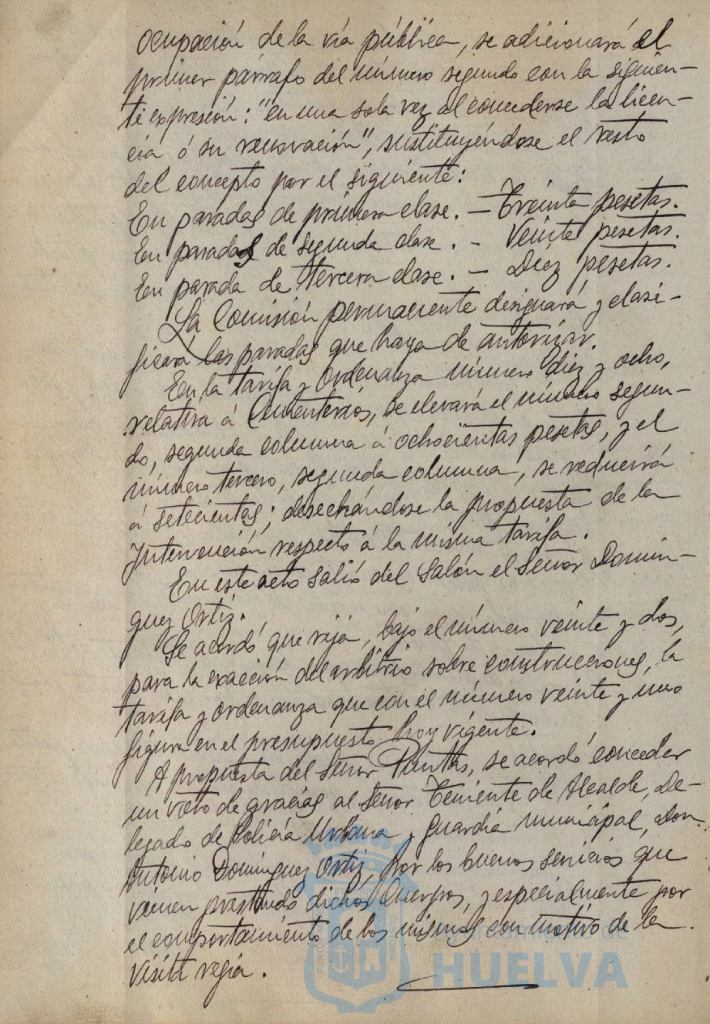 ocupación de la vía pública, se adicionará el
primer párrafo del número segundo con la siguien-
te expresión: "en una sola vez al concederse la licen-
cia ó su renovación", sustituyéndose el resto
del concepto por el siguiente:
En paradas de primera clase. — Treinta pesetas.
En paradas de segunda clase. — Veinte pesetas.
En parada de tercera clase. — Diez pesetas.
La Comisión permanente designará y clasi-
ficará las paradas que haya de autorizar.
En la tarifa y Ordenanza número diez y ocho,
relativa á Cementerios, se elevará el número segun-
do, segunda columna á ochocientas pesetas, y el
número tercero, segunda columna, se reducirá
á setecientas; desechándose la propuesta de la
Intervención respecto á la misma tarifa.
En este acto salió del Salón el Señor Domín-
guez Ortiz.
Se acordó que rija, bajo el número veinte y dos,
para la exacción del arbitrio sobre construcciones, la
tarifa y ordenanza que con el número veinte y uno
figura en el presupuesto hoy vigente.
A propuesta del Señor se acordó conceder
un voto de gracias al Señor Teniente de Alcalde, De-
legado de Policía Urbana y Guardia municipal, Don
Antonio Domínguez Ortiz, por los buenos servicios que
vienen prestando dichos Cuerpos, y especialmente por
el comportamiento de los mismos con motivo de la
visita regia.
HUELVA